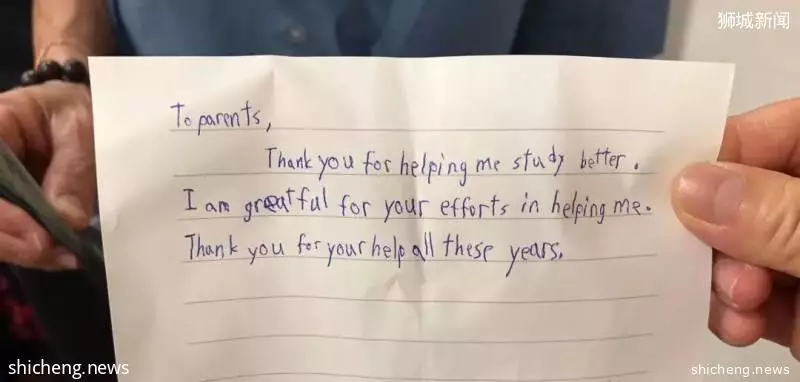 狮城新闻
To parents,
Thank you for helping me study better.
I am greatful for your efforts in helping me.
Thank you for your help all these years.
shicheng.news
shicheng.news